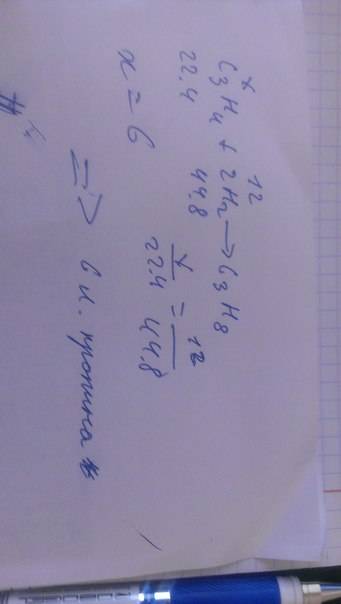 x 12
C3H4 + 2H2 → C3H8
22.4 44.8
x/22.4 = 12/44.8
x = 6
=> 6 л. пропина